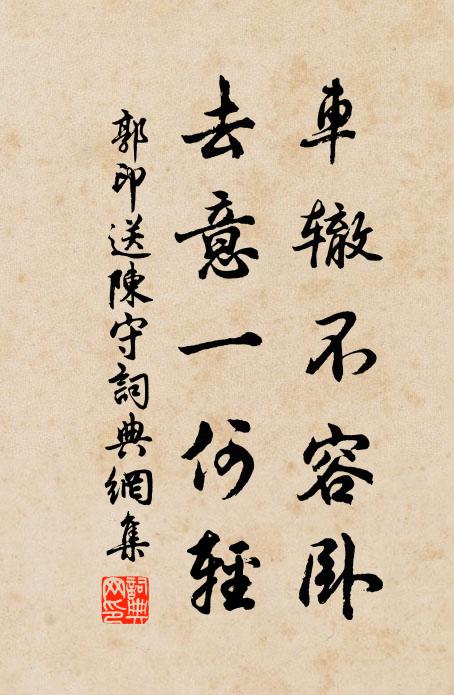 車辙不容卧
去意一何輕
郭印送陳守詞典網集
詞典网印